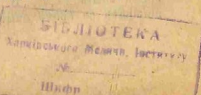 БІБЛІОТЕКА
Харківського Медичн. Інституту
№
Шифр